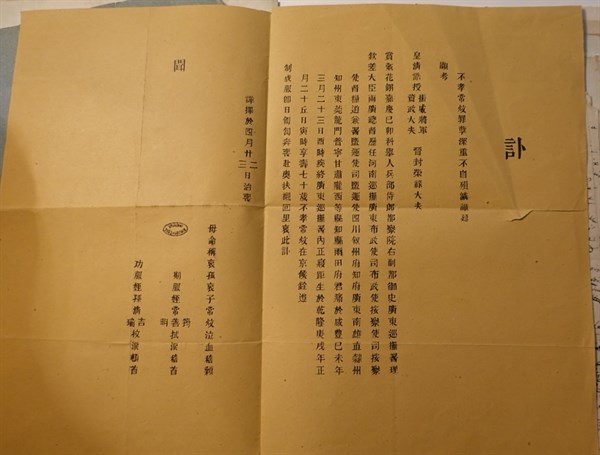 訃
不孝常紋罪孽深重不自殞滅禍延
顯考
皇清誥授振威將軍資政大夫 晉封榮祿大夫
賞戴花翎嘉慶己卯科舉人兵部侍郎都察院右副都御史廣東巡撫署理
欽差大臣兩廣總督歷任河南巡撫廣東布政使司布政使按察使司按察
使鹽運使司鹽運使四川州府知府廣東南雄直隸州
知州東莞龍門普寧甘肅隴西等縣知縣雨田府君於咸豐己未年
三月二十三日酉時疾終廣東巡撫署內正寢距生於乾隆庚戌年正
月二十五日寅時享壽七十歲不孝常紋在京候銓遵
制成服即日匍匐奔喪赴粵扶櫬回里哀此訃
聞
謹擇於四月廿二三日治喪
母命稱哀孤哀子常紋泣血稽顙
期服姪常抆淚稽首
功服姪孫吉拭淚稽首